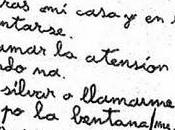 ras mi casa y en
ntarse.
amar la atensión
do na.
silvar o llamaime
po la bentana/me